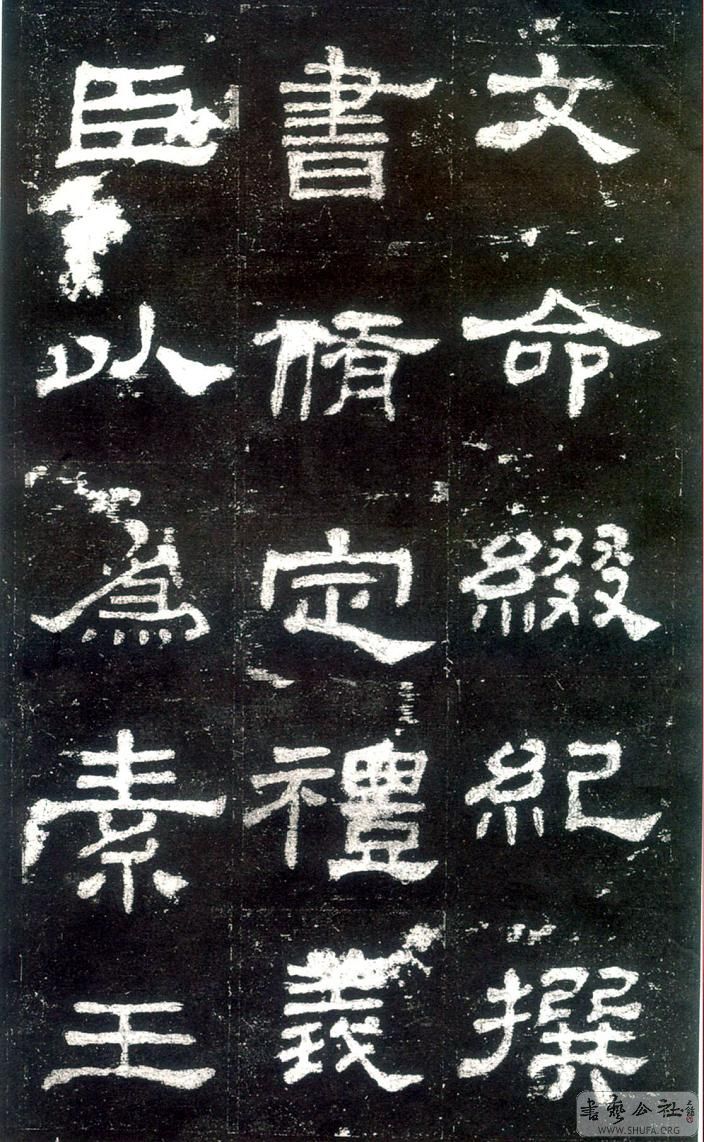 文命綴紀撰
書脩定禮義
臣以為素王
書藝公社
WWW.SHUFA.ORG